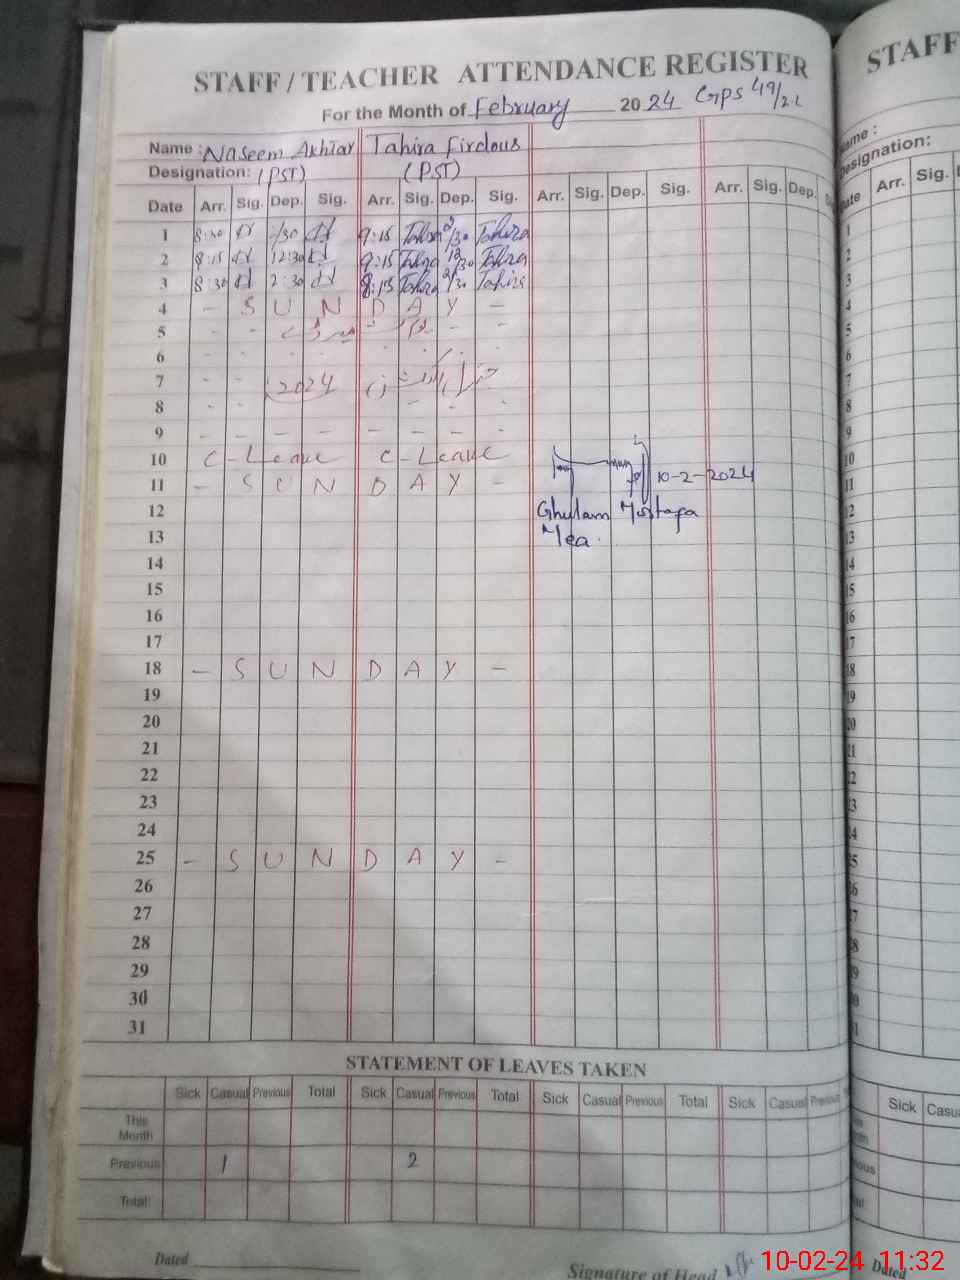 STAFF / TEACHER ATTENDANCE REGISTER
For the Month of February 2024 GPS 49/2.L
Name : Naseem Akhtar Tahira Firdous
Designation: (PST) (PST)
Date Arr. Sig. Dep. Sig. Arr. Sig. Dep. Sig. Arr. Sig. Dep. Sig. Arr. Sig. Dep.
1 8:30 /30 9:15 Tahira /30 Tahira
2 8:15 12:30 9:15 Tahira 12/30 Tahira
3 8:30 2:30 8:15 Tahira 2/30 Tahira
4 - S U N D A Y -
5 - -
6 - -
7 - - 2024 جنرل الیکشن
8 - -
9 - - - - - - - -
10 C-Leave C-Leave
11 - S U N D A Y - 10-2-2024
12 Ghulam Mustafa
13 Mea.
14
15
16
17
18 - S U N D A Y -
19
20
21
22
23
24
25 - S U N D A Y -
26
27
28
29
30
31
STATEMENT OF LEAVES TAKEN
Sick Casual Previous Total Sick Casual Previous Total Sick Casual Previous Total Sick Casual Previous
This Month
Previous 1 2
Total:
Dated
Signature of Head
STAFF
Name :
Designation:
Date Arr. Sig.
Sick Casu
Dated
10-02-24 11:32